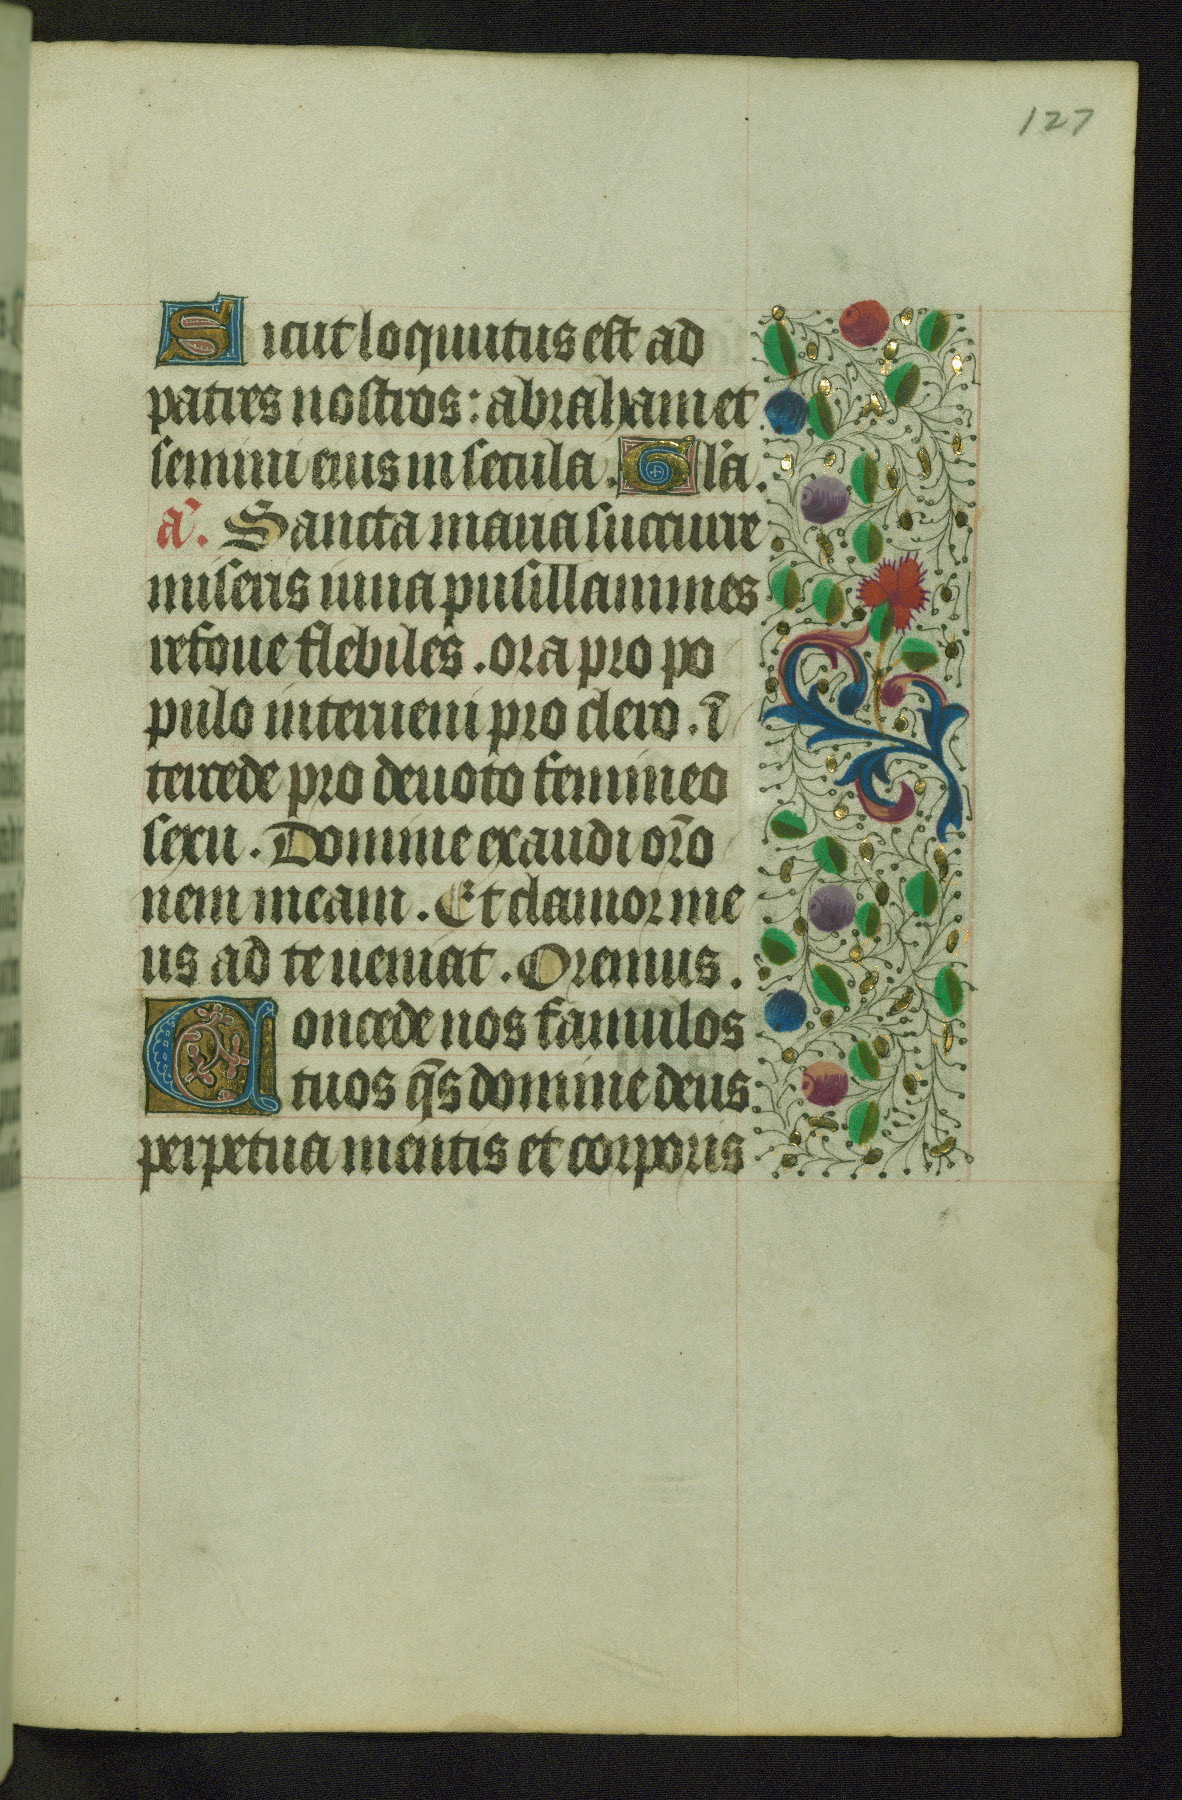 127
Sicut loquutus est ad
patres nostros : abraham et
semini eius in secula . Gl'a .
a' . Sancta maria succurre
miseris iuua pusillanimes
refoue flebiles . ora pro po
pulo interueni pro clero . ī
tercede pro deuoto femineo
sexu . Domine exaudi or̄o
nem meam . Et clamor me
us ad te ueniat . Oremus .
Concede nos famulos
tuos q̄s domine deus
perpetua mentis et corporis